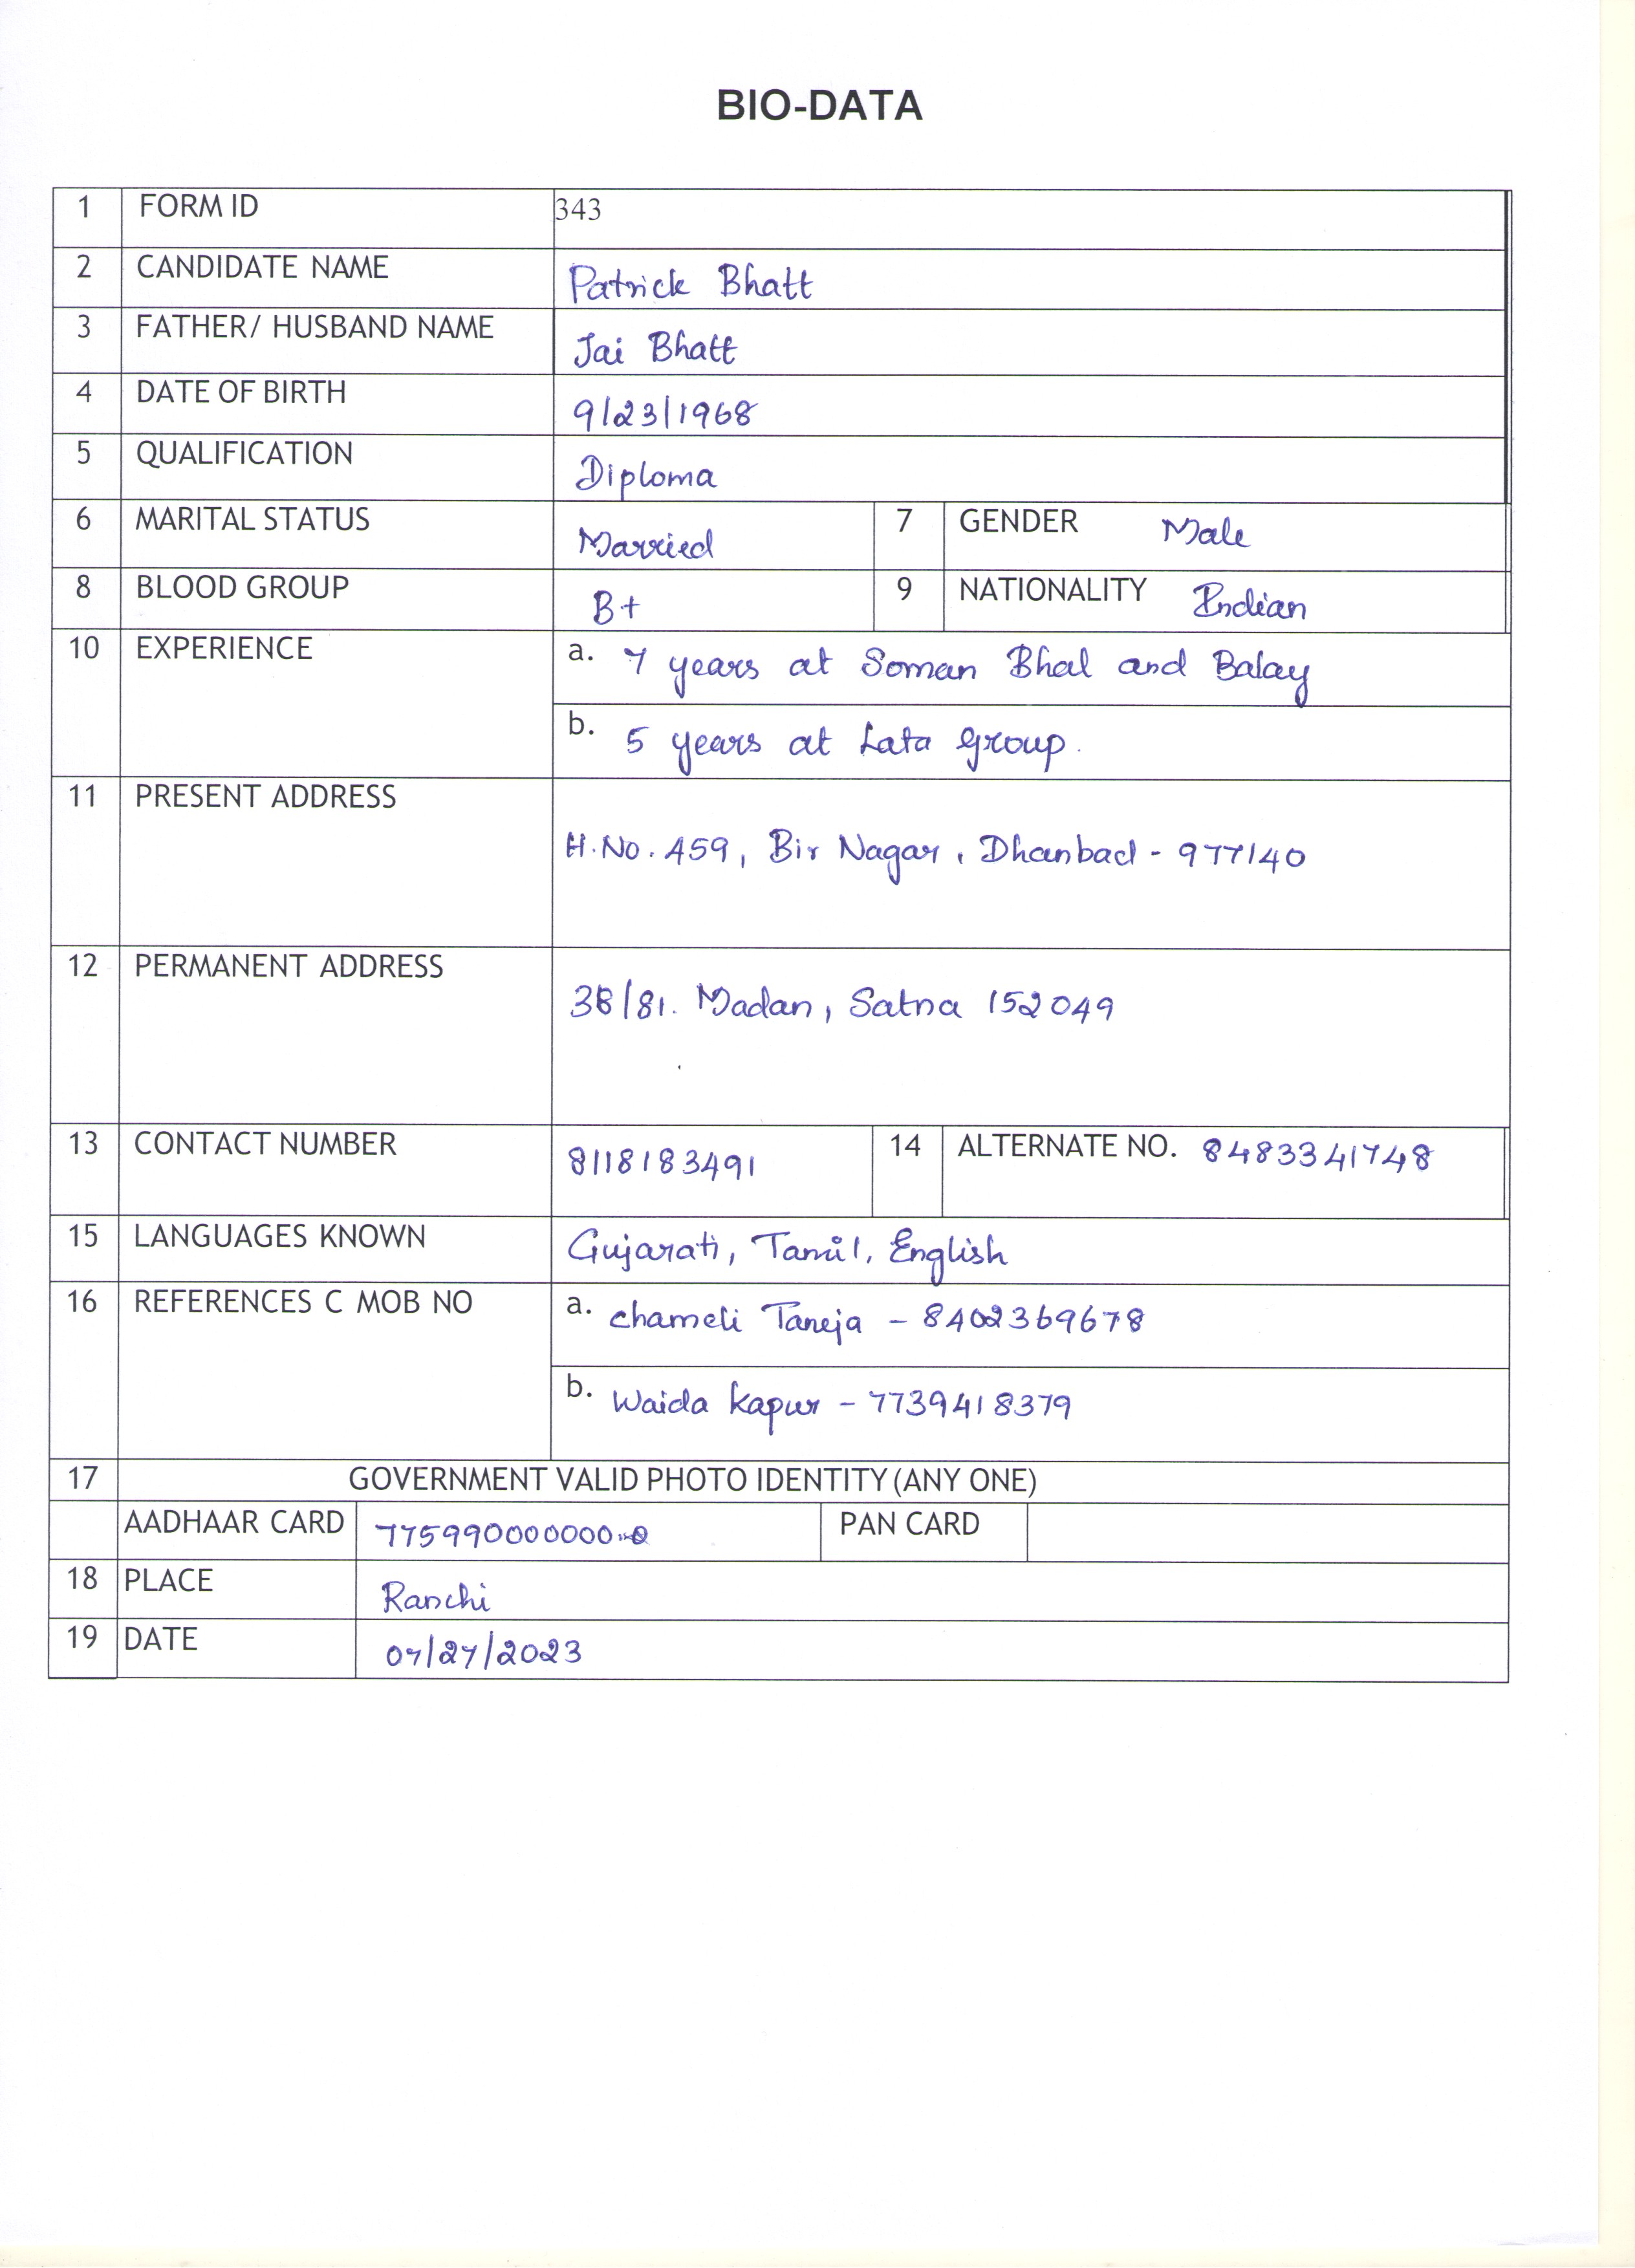 BIO-DATA
1 FORM ID 343
2 CANDIDATE NAME Patrick Bhatt
3 FATHER/ HUSBAND NAME Jai Bhatt
4 DATE OF BIRTH 9/23/1968
5 QUALIFICATION Diploma
6 MARITAL STATUS Married 7 GENDER Male
8 BLOOD GROUP B+ 9 NATIONALITY Indian
10 EXPERIENCE a. 7 years at Soman Bhal and Balay
b. 5 years at Lata Group.
11 PRESENT ADDRESS
H.No. 459, Bir Nagar, Dhanbad - 977140
12 PERMANENT ADDRESS
38/81. Madan, Satna 152049
13 CONTACT NUMBER 8118183491 14 ALTERNATE NO. 8483341748
15 LANGUAGES KNOWN Gujarati, Tamil, English
16 REFERENCES C MOB NO a. Chameli Taneja - 8402369678
b. Waida Kapur - 7739418379
17 GOVERNMENT VALID PHOTO IDENTITY (ANY ONE)
AADHAAR CARD 775990000000 PAN CARD
18 PLACE Ranchi
19 DATE 07/27/2023